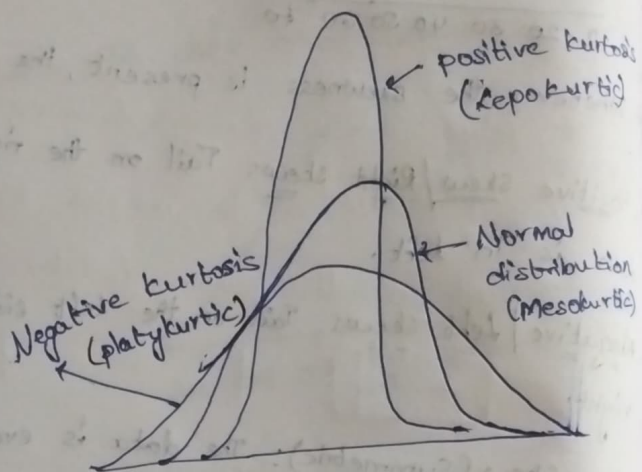 positive kurtosis
(Lepokurtic)
Normal
distribution
(Mesokurtic)
Negative kurtosis
(platykurtic)